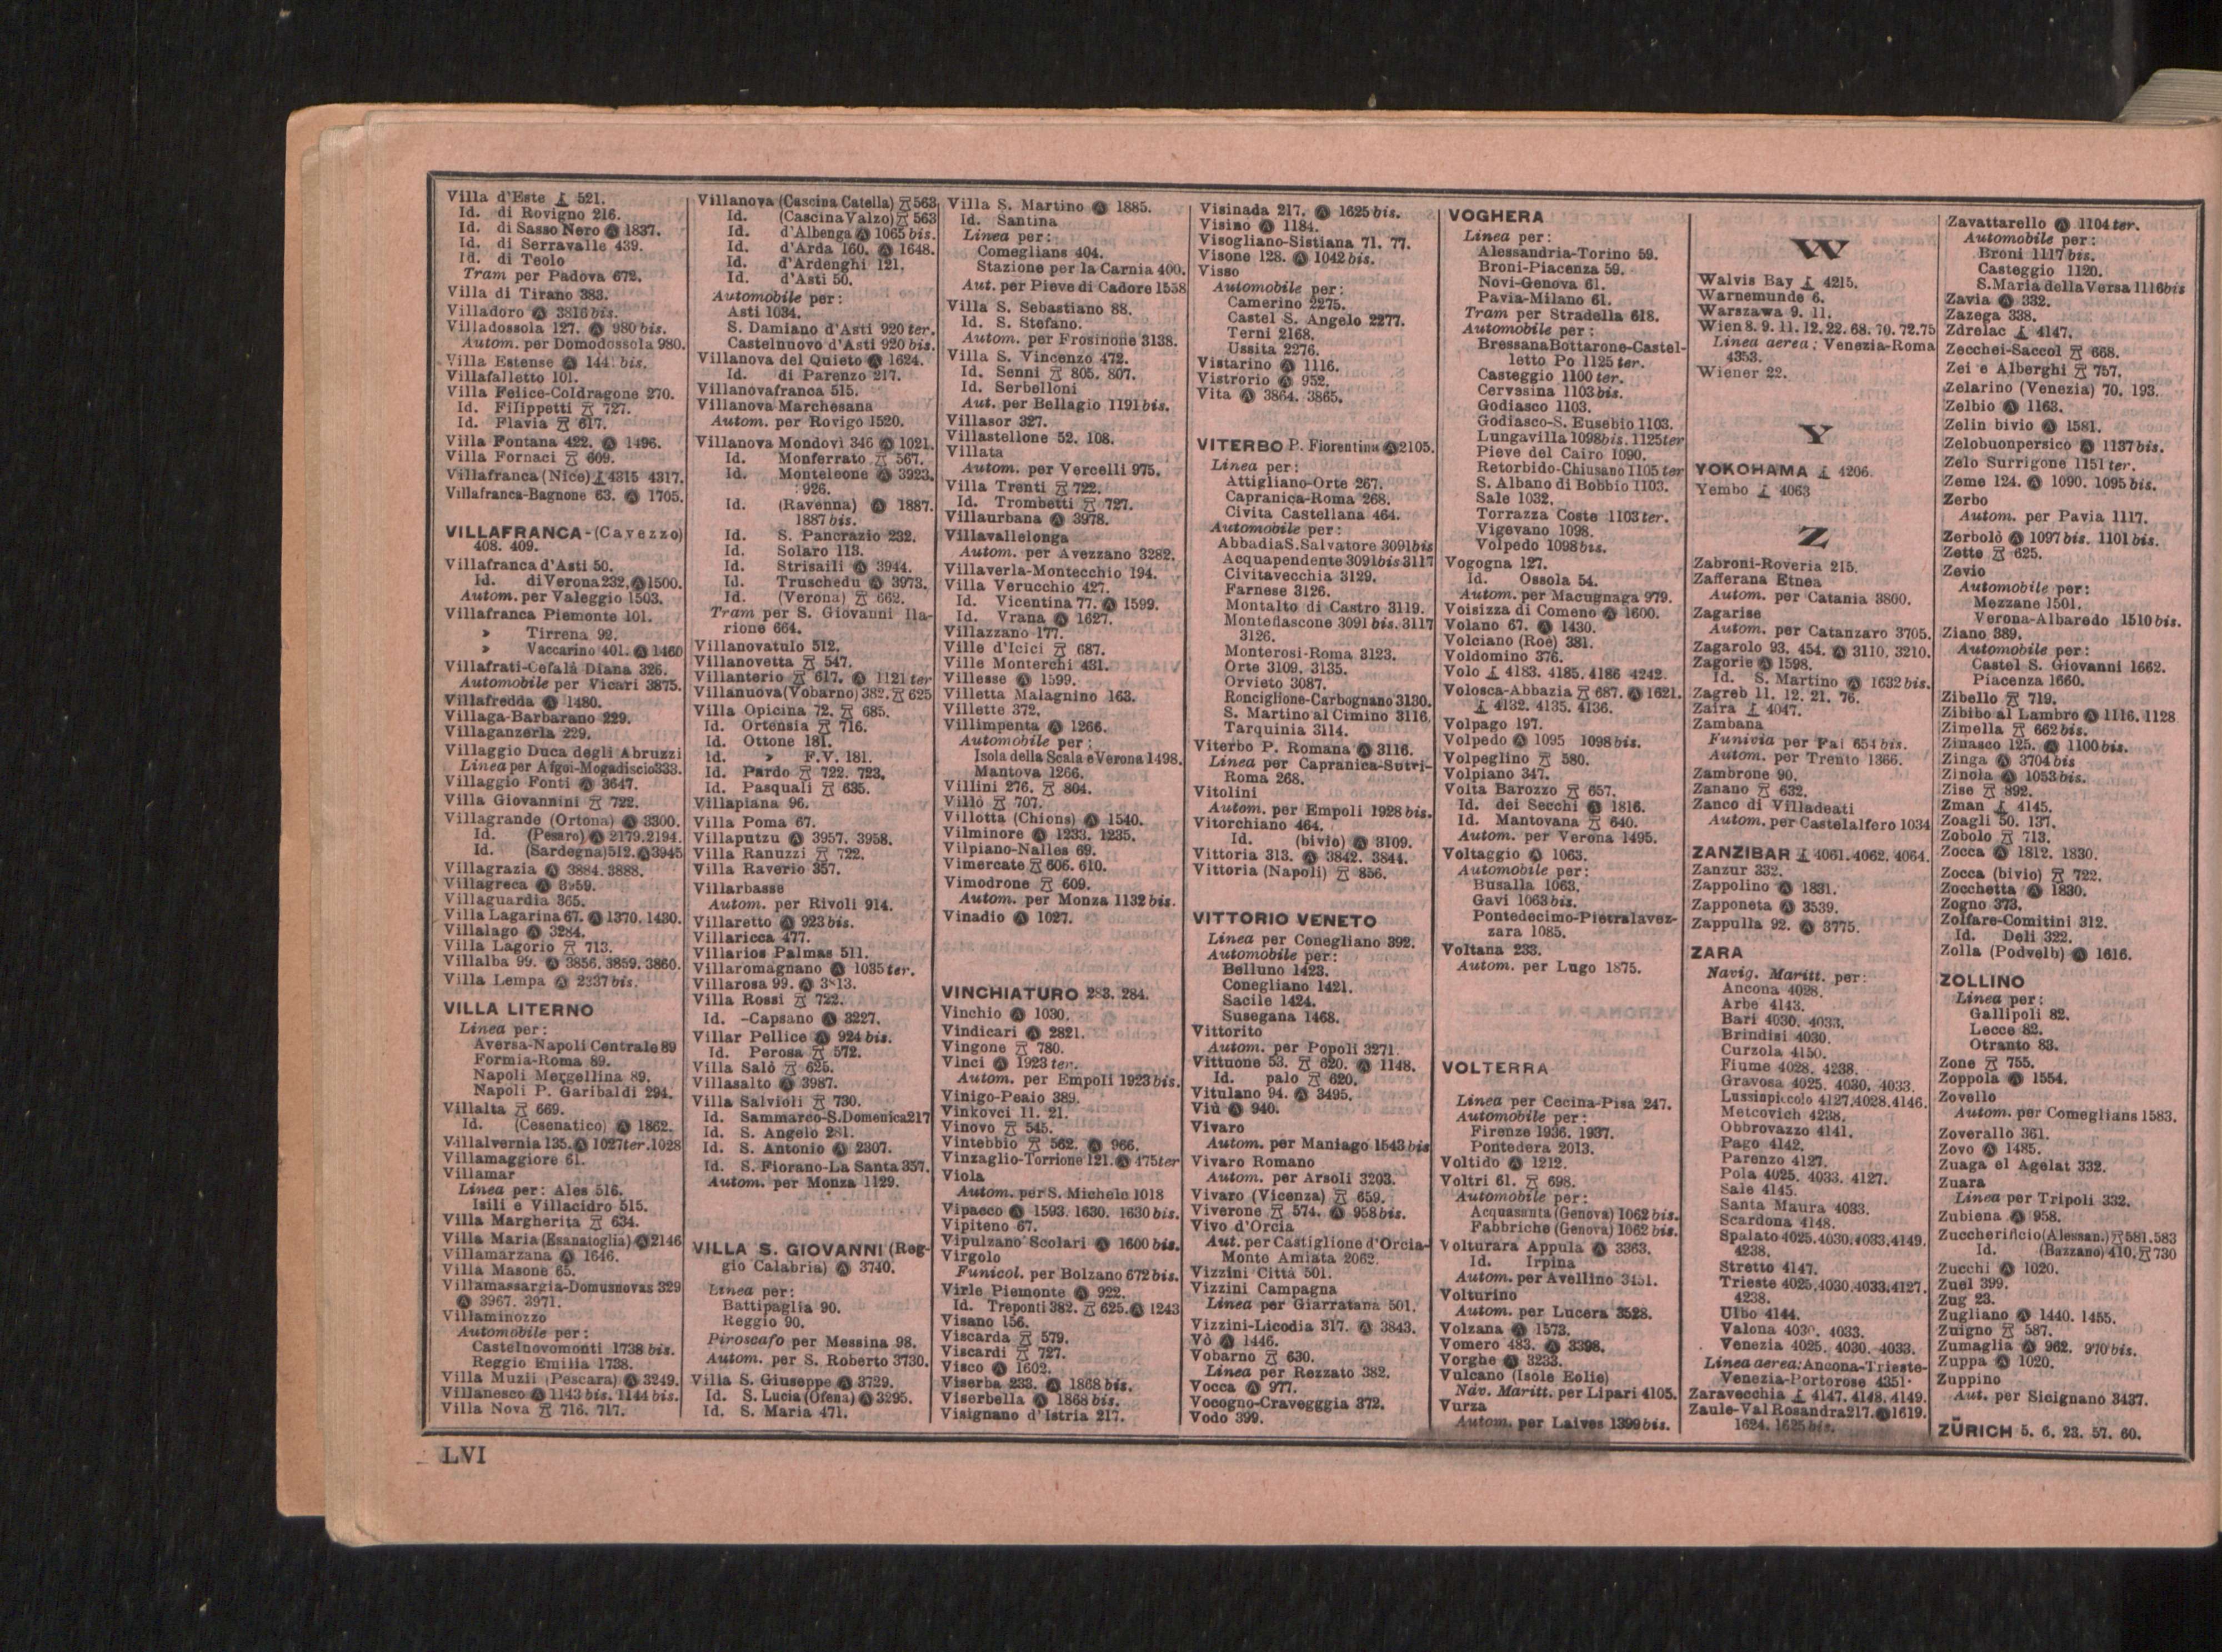 Villa d'Este 521.
Id. di Rovigno 216.
Id. di Sasso Nero Ⓐ 1837.
Id. di Serravalle 439.
Id. di Teolo
Tram per Padova 672.
Villa di Tirano 383.
Villadoro Ⓐ 3816 bis.
Villadossola 127. Ⓐ 980 bis.
Autom. per Domodossola 980.
Villa Estense Ⓐ 144 bis.
Villafalletto 101.
Villa Felice-Coldragone 270.
Id. Filippetti 727.
Id. Flavia 617.
Villa Fontana 422. Ⓐ 1496.
Villa Fornaci 609.
Villafranca (Nice) 4315 4317.
Villafranca-Bagnone 63. Ⓐ 1705.
VILLAFRANCA-(Cavezzo)
408. 409.
Villafranca d'Asti 50.
Id. di Verona 232. Ⓐ 1500.
Autom. per Valeggio 1503.
Villafranca Piemonte 101.
» Tirrena 92.
» Vaccarino 401. Ⓐ 1460
Villafrati-Cefalà Diana 326.
Automobile per Vicari 3875.
Villafredda Ⓐ 1480.
Villaga-Barbarano 229.
Villaganzerla 229.
Villaggio Duca degli Abruzzi
Linea per Afgoi-Mogadiscio 333.
Villaggio Fonti Ⓐ 3647.
Villa Giovannini 722.
Villagrande (Ortona) Ⓐ 3300.
Id. (Pesaro) Ⓐ 2179. 2194.
Id. (Sardegna) 512. Ⓐ 3945
Villagrazia Ⓐ 3884. 3888.
Villagreca Ⓐ 3959.
Villaguardia 365.
Villa Lagarina 67. Ⓐ 1370. 1430.
Villalago Ⓐ 3284.
Villa Lagorio 713.
Villalba 99. Ⓐ 3856. 3859. 3860.
Villa Lempa Ⓐ 2337 bis.
VILLA LITERNO
Linea per:
Aversa-Napoli Centrale 89
Formia-Roma 89.
Napoli Mergellina 89.
Napoli P. Garibaldi 294.
Villalta 669.
Id. (Cesenatico) Ⓐ 1862.
Villalvernia 135. Ⓐ 1027 ter. 1028
Villamaggiore 61.
Villamar
Linea per: Ales 516.
Isili e Villacidro 515.
Villa Margherita 634.
Villa Maria (Esanatoglia) Ⓐ 2146
Villamarzana Ⓐ 1646.
Villa Masone 65.
Villamassargia-Domusnovas 329
Ⓐ 3967. 3971.
Villaminozzo
Automobile per:
Castelnovomonti 1738 bis.
Reggio Emilia 1738.
Villa Muzii (Pescara) Ⓐ 3249.
Villanesco Ⓐ 1143 bis. 1144 bis.
Villa Nova 716. 717.
Villanova (Cascina Catella) 563
Id. (Cascina Valzo) 563
Id. d'Albenga Ⓐ 1065 bis.
Id. d'Arda 160. Ⓐ 1648.
Id. d'Ardenghi 121.
Id. d'Asti 50.
Automobile per:
Asti 1034.
S. Damiano d'Asti 920 ter.
Castelnuovo d'Asti 920 bis.
Villanova del Quieto Ⓐ 1624.
Id. di Parenzo 217.
Villanovafranca 515.
Villanova Marchesana
Autom. per Rovigo 1520.
Villanova Mondovì 346 Ⓐ 1021.
Id. Monferrato 567.
Id. Monteleone Ⓐ 3923.
926.
Id. (Ravenna) Ⓐ 1887.
1887 bis.
Id. S. Pancrazio 232.
Id. Solaro 113.
Id. Strisaili Ⓐ 3944.
Id. Truschedu Ⓐ 3973.
Id. (Verona) 662.
Tram per S. Giovanni Ila-
rione 664.
Villanovatulo 512.
Villanovetta 547.
Villanterio 617. Ⓐ 1121 ter
Villanuova (Vobarno) 382. 625
Villa Opicina 72. 685.
Id. Ortensia 716.
Id. Ottone 181.
Id. » F.V. 181.
Id. Pardo 722. 723.
Id. Pasquali 635.
Villapiana 96.
Villa Poma 67.
Villaputzu Ⓐ 3957. 3958.
Villa Ranuzzi 722.
Villa Raverio 357.
Villarbasse
Autom. per Rivoli 914.
Villaretto Ⓐ 923 bis.
Villaricca 477.
Villarios Palmas 511.
Villaromagnano Ⓐ 1035 ter.
Villarosa 99. Ⓐ 3813.
Villa Rossi 722.
Id. -Capsano Ⓐ 3227.
Villar Pellice Ⓐ 924 bis.
Id. Perosa 572.
Villa Salò 625.
Villasalto Ⓐ 3987.
Villa Salvioli 730.
Id. Sammarco-S. Domenica 217
Id. S. Angelo 281.
Id. S. Antonio Ⓐ 2307.
Id. S. Fiorano-La Santa 357.
Autom. per Monza 1129.
VILLA S. GIOVANNI (Reg-
gio Calabria) Ⓐ 3740.
Linea per:
Battipaglia 90.
Reggio 90.
Piroscafo per Messina 98.
Autom. per S. Roberto 3730.
Villa S. Giuseppe Ⓐ 3729.
Id. S. Lucia (Ofena) Ⓐ 3295.
Id. S. Maria 471.
Villa S. Martino Ⓐ 1885.
Id. Santina
Linea per:
Comeglians 404.
Stazione per la Carnia 400.
Aut. per Pieve di Cadore 1558
Villa S. Sebastiano 88.
Id. S. Stefano.
Autom. per Frosinone 3138.
Villa S. Vincenzo 472.
Id. Senni 805. 807.
Id. Serbelloni
Aut. per Bellagio 1191 bis.
Villasor 327.
Villastellone 52. 108.
Villata
Autom. per Vercelli 975.
Villa Trenti 722.
Id. Trombetti 727.
Villaurbana Ⓐ 3978.
Villavallelonga
Autom. per Avezzano 3282.
Villaverla-Montecchio 194.
Villa Verucchio 427.
Id. Vicentina 77. Ⓐ 1599.
Id. Vrana Ⓐ 1627.
Villazzano 177.
Ville d'Icici 687.
Ville Monterchi 431.
Villesse Ⓐ 1599.
Villetta Malagnino 163.
Villette 372.
Villimpenta Ⓐ 1266.
Automobile per:
Isola della Scala e Verona 1498.
Mantova 1266.
Villini 276. 804.
Villò 707.
Villotta (Chions) Ⓐ 1540.
Vilminore Ⓐ 1233. 1235.
Vilpiano-Nalles 69.
Vimercate 606. 610.
Vimodrone 609.
Autom. per Monza 1132 bis.
Vinadio Ⓐ 1027.
VINCHIATURO 283. 284.
Vinchio Ⓐ 1030.
Vindicari Ⓐ 2821.
Vingone 780.
Vinci Ⓐ 1923 ter.
Autom. per Empoli 1923 bis.
Vinigo-Peaio 389.
Vinkovci 11. 21.
Vinovo 545.
Vintebbio 562. Ⓐ 966.
Vinzaglio-Torrione 121. Ⓐ 475 ter
Viola
Autom. per S. Michele 1018
Vipacco Ⓐ 1593. 1630. 1630 bis.
Vipiteno 67.
Vipulzano Scolari Ⓐ 1600 bis.
Virgolo
Funicol. per Bolzano 672 bis.
Virle Piemonte Ⓐ 922.
Id. Treponti 382. 625. Ⓐ 1243
Visano 156.
Viscarda 579.
Viscardi 727.
Visco Ⓐ 1602.
Viserba 233. Ⓐ 1868 bis.
Viserbella Ⓐ 1868 bis.
Visignano d'Istria 217.
Visinada 217. Ⓐ 1625 bis.
Visino Ⓐ 1184.
Visogliano-Sistiana 71. 77.
Visone 128. Ⓐ 1042 bis.
Visso
Automobile per:
Camerino 2275.
Castel S. Angelo 2277.
Terni 2168.
Ussita 2276.
Vistarino Ⓐ 1116.
Vistrorio Ⓐ 952.
Vita Ⓐ 3864. 3865.
VITERBO P. Fiorentina Ⓐ 2105.
Linea per:
Attigliano-Orte 267.
Capranica-Roma 268.
Civita Castellana 464.
Automobile per:
Abbadia S. Salvatore 3091 bis
Acquapendente 3091 bis 3117
Civitavecchia 3129.
Farnese 3126.
Montalto di Castro 3119.
Montefiascone 3091 bis. 3117
3126.
Monterosi-Roma 3123.
Orte 3109. 3135.
Orvieto 3087.
Ronciglione-Carbognano 3130.
S. Martino al Cimino 3116.
Tarquinia 3114.
Viterbo P. Romana Ⓐ 3116.
Linea per Capranica-Sutri-
Roma 268.
Vitolini
Autom. per Empoli 1928 bis.
Vitorchiano 464.
Id. (bivio) Ⓐ 3109.
Vittoria 313. Ⓐ 3842. 3844.
Vittoria (Napoli) 856.
VITTORIO VENETO
Linea per Conegliano 392.
Automobile per:
Belluno 1423.
Conegliano 1421.
Sacile 1424.
Susegana 1468.
Vittorito
Autom. per Popoli 3271.
Vittuone 53. 620. Ⓐ 1148.
Id. palo 620.
Vitulano 94. Ⓐ 3495.
Viù Ⓐ 940.
Vivaro
Autom. per Maniago 1543 bis
Vivaro Romano
Autom. per Arsoli 3203.
Vivaro (Vicenza) 659.
Viverone 574. Ⓐ 958 bis.
Vivo d'Orcia
Aut. per Castiglione d'Orcia-
Monte Amiata 2062.
Vizzini Città 501.
Vizzini Campagna
Linea per Giarratana 501.
Vizzini-Licodia 317. Ⓐ 3843.
Vò Ⓐ 1446.
Vobarno 630.
Linea per Rezzato 382.
Vocca Ⓐ 977.
Vocogno-Cravegggia 372.
Vodo 399.
VOGHERA
Linea per:
Alessandria-Torino 59.
Broni-Piacenza 59.
Novi-Genova 61.
Pavia-Milano 61.
Tram per Stradella 618.
Automobile per:
Bressana Bottarone-Castel-
letto Po 1125 ter.
Casteggio 1100 ter.
Cervesina 1103 bis.
Godiasco 1103.
Godiasco-S. Eusebio 1103.
Lungavilla 1098 bis. 1125 ter
Pieve del Cairo 1090.
Retorbido-Chiusano 1105 ter
S. Albano di Bobbio 1103.
Sale 1032.
Torrazza Coste 1103 ter.
Vigevano 1098.
Volpedo 1098 bis.
Vogogna 127.
Id. Ossola 54.
Autom. per Macugnaga 979.
Voisizza di Comeno Ⓐ 1600.
Volano 67. Ⓐ 1430.
Volciano (Roè) 381.
Voldomino 376.
Volo 4183. 4185. 4186 4242.
Volosca-Abbazia 687. Ⓐ 1621.
4132. 4135. 4136.
Volpago 197.
Volpedo Ⓐ 1095 1098 bis.
Volpeglino 580.
Volpiano 347.
Volta Barozzo 657.
Id. dei Secchi Ⓐ 1816.
Id. Mantovana 640.
Autom. per Verona 1495.
Voltaggio Ⓐ 1063.
Automobile per:
Busalla 1063.
Gavi 1063 bis.
Pontedecimo-Pietralavez-
zara 1085.
Voltana 233.
Autom. per Lugo 1875.
VOLTERRA
Linea per Cecina-Pisa 247.
Automobile per:
Firenze 1936. 1937.
Pontedera 2013.
Voltido Ⓐ 1212.
Voltri 61. 698.
Automobile per:
Acquasanta (Genova) 1062 bis.
Fabbriche (Genova) 1062 bis.
Volturara Appula Ⓐ 3363.
Id. Irpina
Autom. per Avellino 3451.
Volturino
Autom. per Lucera 3528.
Volzana Ⓐ 1573.
Vomero 483. Ⓐ 3398.
Vorghe Ⓐ 3233.
Vulcano (Isole Eolie)
Nav. Maritt. per Lipari 4105.
Vurza
Autom. per Laives 1399 bis.
W
Walvis Bay 4215.
Warnemunde 6.
Warszawa 9. 11.
Wien 8. 9. 11. 12. 22. 68. 70. 72. 75
Linea aerea: Venezia-Roma
4353.
Wiener 22.
Y
YOKOHAMA 4206.
Yembo 4063
Z
Zabroni-Roveria 215.
Zafferana Etnea
Autom. per Catania 3800.
Zagarise
Autom. per Catanzaro 3705.
Zagarolo 93. 454. Ⓐ 3110. 3210.
Zagorie Ⓐ 1598.
Id. S. Martino Ⓐ 1632 bis.
Zagreb 11. 12. 21. 76.
Zaira 4047.
Zambana
Funivia per Fai 654 bis.
Autom. per Trento 1366.
Zambrone 90.
Zanano 632.
Zanco di Villadeati
Autom. per Castelalfero 1034
ZANZIBAR 4061. 4062. 4064.
Zanzur 332.
Zappolino Ⓐ 1831.
Zapponeta Ⓐ 3539.
Zappulla 92. Ⓐ 3775.
ZARA
Navig. Maritt. per:
Ancona 4028.
Arbe 4143.
Bari 4030. 4033.
Brindisi 4030.
Curzola 4150.
Fiume 4028. 4238.
Gravosa 4025. 4030. 4033.
Lussinpiccolo 4127. 4028. 4146.
Metcovich 4238.
Obbrovazzo 4141.
Pago 4142.
Parenzo 4127.
Pola 4025. 4033. 4127.
Sale 4145.
Santa Maura 4033.
Scardona 4148.
Spalato 4025. 4030. 4033. 4149.
4238.
Stretto 4147.
Trieste 4025. 4030. 4033. 4127.
4238.
Ulbo 4144.
Valona 4030. 4033.
Venezia 4025. 4030. 4033.
Linea aerea: Ancona-Trieste-
Venezia-Portorose 4351.
Zaravecchia 4147. 4148. 4149.
Zaule-Val Rosandra 217. Ⓐ 1619.
1624. 1625 bis.
Zavattarello Ⓐ 1104 ter.
Automobile per:
Broni 1117 bis.
Casteggio 1120.
S. Maria della Versa 1116 bis
Zavia Ⓐ 332.
Zazega 338.
Zdrelac 4147.
Zecchei-Saccol 668.
Zei e Alberghi 757.
Zelarino (Venezia) 70. 193.
Zelbio Ⓐ 1163.
Zelin bivio Ⓐ 1581.
Zelobuonpersico Ⓐ 1137 bis.
Zelo Surrigone 1151 ter.
Zeme 124. Ⓐ 1090. 1095 bis.
Zerbo
Autom. per Pavia 1117.
Zerbolò Ⓐ 1097 bis. 1101 bis.
Zette 625.
Zevio
Automobile per:
Mezzane 1501.
Verona-Albaredo 1510 bis.
Ziano 389.
Automobile per:
Castel S. Giovanni 1662.
Piacenza 1660.
Zibello 719.
Zibibo al Lambro Ⓐ 1116. 1128
Zimella 662 bis.
Zinasco 125. Ⓐ 1100 bis.
Zinga Ⓐ 3704 bis
Zinola Ⓐ 1053 bis.
Zise 892.
Zman 4145.
Zoagli 50. 137.
Zobolo 713.
Zocca Ⓐ 1812. 1830.
Zocca (bivio) 722.
Zocchetta Ⓐ 1830.
Zogno 373.
Zolfare-Comitini 312.
Id. Deli 322.
Zolla (Podvelb) Ⓐ 1616.
ZOLLINO
Linea per:
Gallipoli 82.
Lecce 82.
Otranto 83.
Zone 755.
Zoppola Ⓐ 1554.
Zovello
Autom. per Comeglians 1583.
Zoverallo 361.
Zovo Ⓐ 1485.
Zuaga el Agelat 332.
Zuara
Linea per Tripoli 332.
Zubiena Ⓐ 958.
Zuccherificio (Alessan.) 581. 583
Id. (Bazzano) 410. 730
Zucchi Ⓐ 1020.
Zuel 399.
Zug 23.
Zugliano Ⓐ 1440. 1455.
Zuigno 587.
Zumaglia Ⓐ 962. 970 bis.
Zuppa Ⓐ 1020.
Zuppino
Aut. per Sicignano 3437.
ZÜRICH 5. 6. 23. 57. 60.
LVI